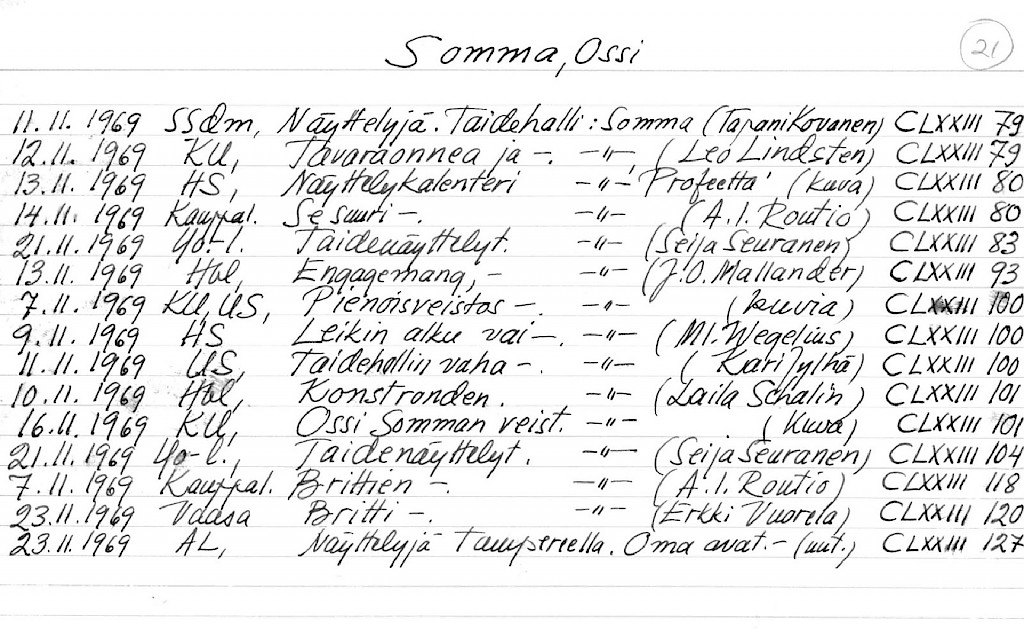 Somma, Ossi
21
11.11.1969 SSdm, Näyttelyjä. Taidehalli: Somma (Tapani Kovanen) CLXXIII 79
12.11.1969 KU, Tavaraonnea ja -. -"-, (Leo Lindsten) CLXXIII 79
13.11.1969 HS, Näyttelykalenteri -"- 'Profeetta' (kuva) CLXXIII 80
14.11.1969 Kauppal. Se suuri -. -"- (A.I. Routio) CLXXIII 80
21.11.1969 Yo-l. Taidenäyttelyt. -"- (Seija Seuranen) CLXXIII 83
13.11.1969 Hbl, Engagemang, - -"- (J.O. Mallander) CLXXIII 93
7.11.1969 KU, US, Pienoisveistos -. -"- (kuvia) CLXXIII 100
9.11.1969 HS Leikin alku vai -. -"- (Ml. Wegelius) CLXXIII 100
11.11.1969 US, Taidehallin vaha -. -"- (Kari Jylhä) CLXXIII 100
10.11.1969 Hbl, Konstronden. -"- (Laila Schalin) CLXXIII 101
16.11.1969 KU, Ossi Somman veist. -"- (kuva) CLXXIII 101
21.11.1969 Yo-l., Taidenäyttelyt. -"- (Seija Seuranen) CLXXIII 104
7.11.1969 Kauppal. Brittien -. -"- (A.I. Routio) CLXXIII 118
23.11.1969 Vaasa Britti -. -"- (Erkki Vuorela) CLXXIII 120
23.11.1969 AL, Näyttelyjä Tampereella. Oma avat. - (uut.) CLXXIII 127